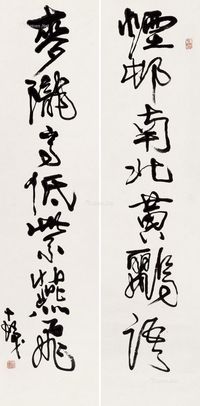 煙邨南北黃鸝語
麥隴高低紫燕飛